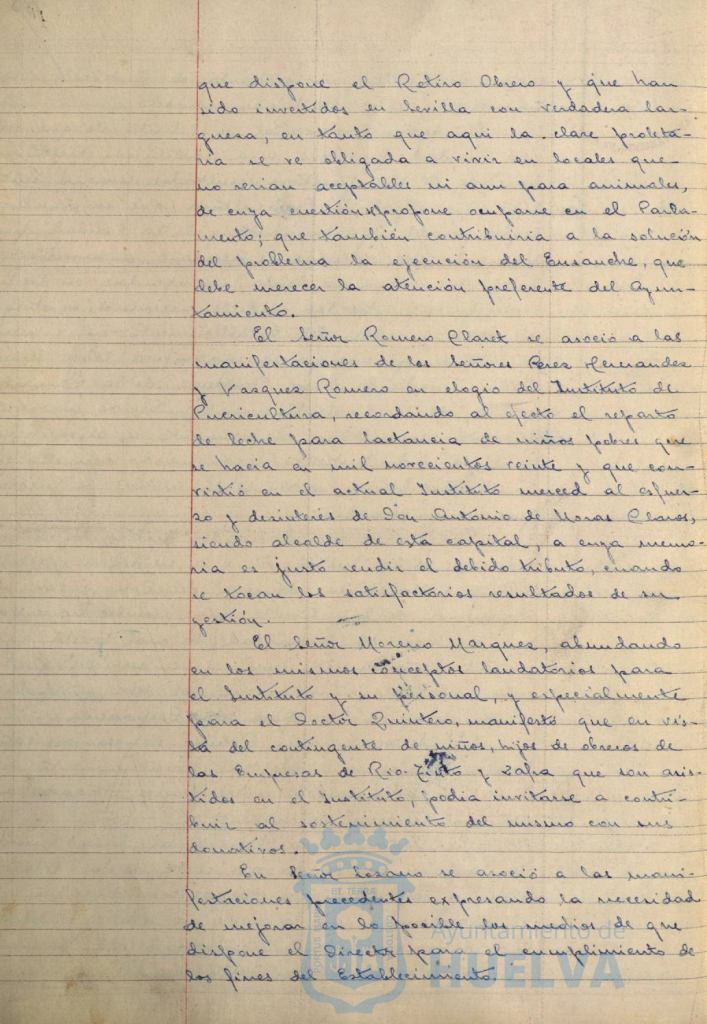 que dispone el Retiro Obrero y que han
sido invertidos en Sevilla con verdadera lar-
gueza, en tanto que aqui la clase proleta-
ria se ve obligada a vivir en locales que
no serian aceptables ni aun para animales,
de cuya cuestión propone ocuparse en el Parla-
mento; que también contribuiria a la solución
del problema la ejecución del Ensanche, que
debe merecer la atención preferente del Ayun-
tamiento.
El Señor Romero Claret se asoció a las
manifestaciones de los Señores Perez Hernandez
y Vazquez Romero en elogio del Instituto de
Puericultura, recordando al efecto el reparto
de leche para lactancia de niños pobres que
se hacia en mil novecientos veinte y que con-
virtió en el actual Instituto merced al esfuer-
zo y desinterés de Don António de Moras Claros,
siendo alcalde de esta capital, a cuya memo-
ria es justo rendir el debido tributo, cuando
se tocan los satisfactorios resultados de su
gestión.
El Señor Moreno Marquez, abundando
en los mismos conceptos laudatorios para
el Instituto y su personal, y especialmente
para el Doctor Quintero, manifestó que en vis-
ta del contingente de niños, hijos de obreros de
las Empresas de Rio-Tinto y Zafra que son asis-
tidos en el Instituto, podia invitarse a contri-
buir al sostenimiento del mismo con sus
donativos.
En Señor Lozano se asoció a las mani-
festaciones precedentes expresando la necesidad
de mejorar en lo posible los medios de que
dispone el Director para el cumplimiento de
los fines del Establecimiento.
Ayuntamiento de
HUELVA